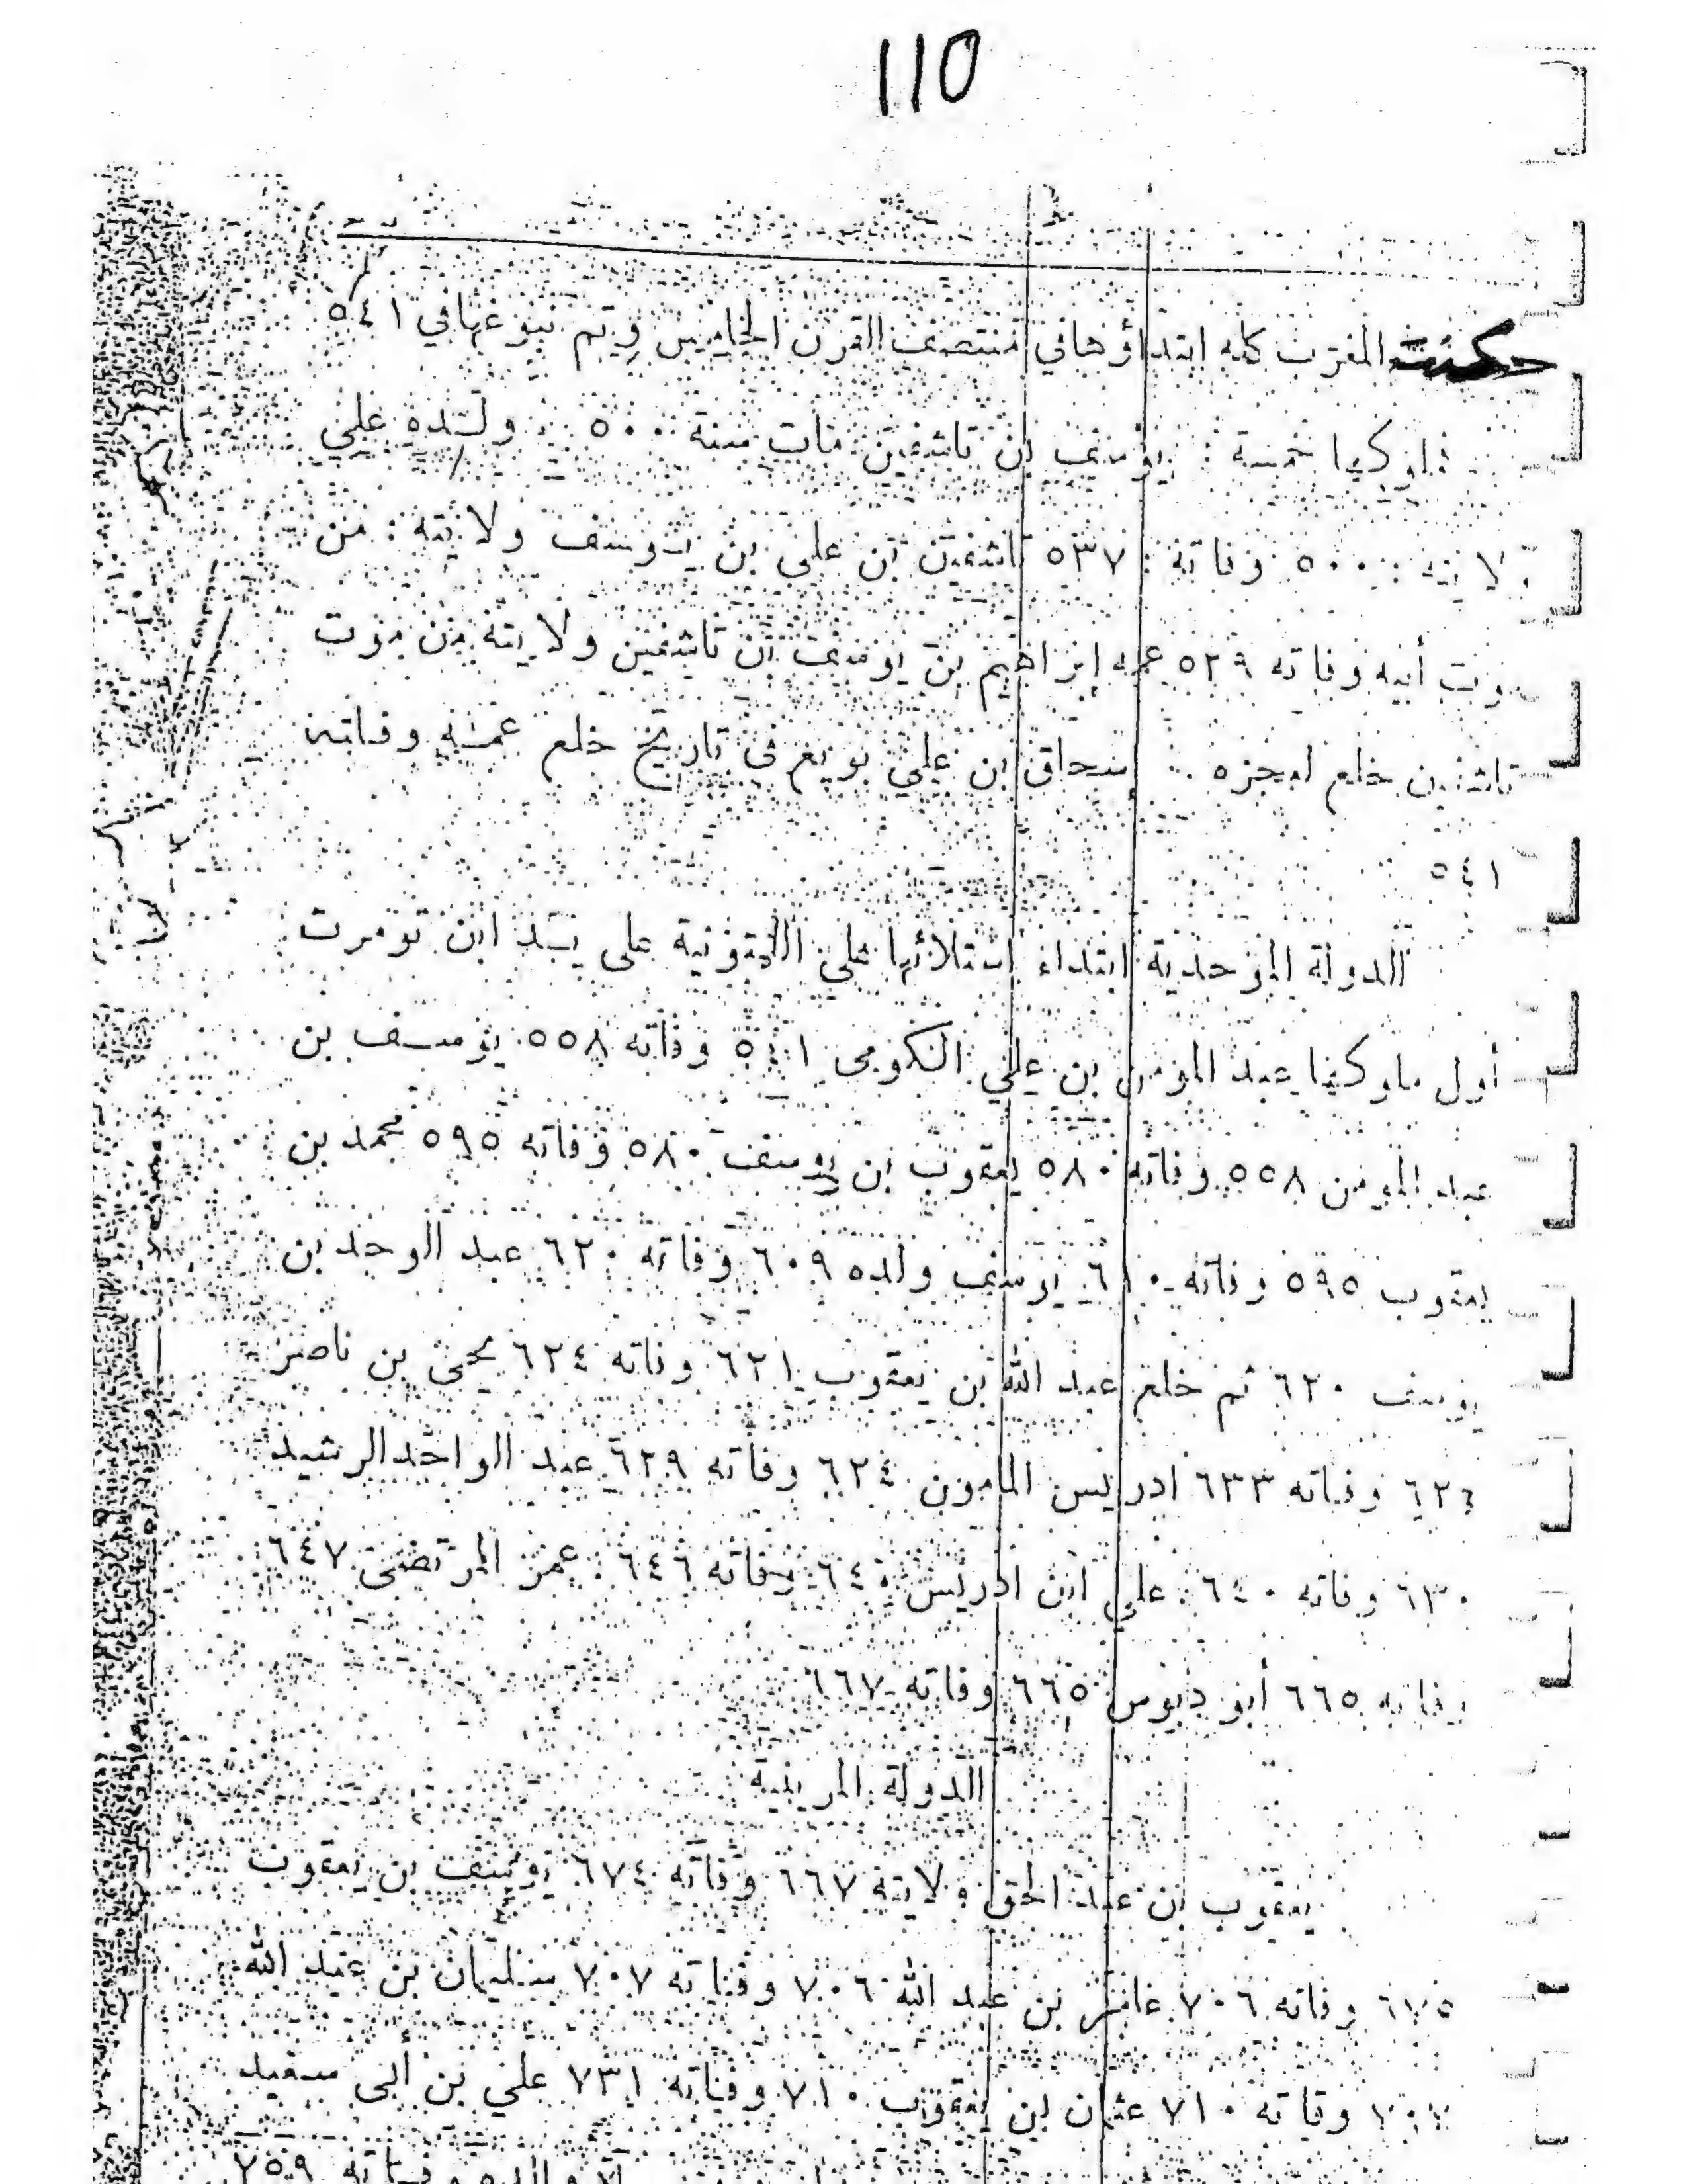 110
حكمت المغرب كله ابتداؤها في منتصف القرن الخامس ويتم نبوغها في ٥٤١
ملوكها خمسة : يوسف بن تاشفين مات سنة ٥٠٠ ولده علي
ولايته : ٥٠٠ وفاته : ٥٣٧ تاشفين بن علي بن يوسف ولايته : من
موت أبيه وفاته ٥٣٩ عمه إبراهيم بن يوسف بن تاشفين ولايته من موت
تاشفين خلع لعجزه إسحاق بن علي بويع في تاريخ خلع عمه وفاته
٥٤١
الدولة الموحدية ابتداء استلائها على اللمتونية على يد ابن تومرت
أول ملوكها عبد المومن بن علي الكومى ٥٤١ وفاته ٥٥٨ يوسف بن
عبد المومن ٥٥٨ وفاته ٥٨٠ يعقوب بن يوسف ٥٨٠ وفاته ٥٩٥ محمد بن
يعقوب ٥٩٥ وفاته ٦١٠ يوسف ولده ٦٠٩ وفاته ٦٢٠ عبد الوحد بن
يوسف ٦٢٠ ثم خلع عبد الله بن يعقوب ٦٢١ وفاته ٦٢٤ يحيى بن ناصر
٦٢٦ وفاته ٦٣٣ ادريس المامون ٦٢٤ وفاته ٦٢٩ عبد الواحد الرشيد
٦٣٠ وفاته ٦٤٠ علي ابن ادريس ٦٤٠ وفاته ٦٤٦ عمر المرتضى ٦٤٧
وفاته ٦٦٥ أبو دبوس ٦٦٥ وفاته ٦٦٧
الدولة المرينية
يعقوب بن عبد الحق ولايته ٦٦٧ وفاته ٦٧٤ يوسف بن يعقوب
٦٧٥ وفاته ٧٠٦ عامر بن عبد الله ٧٠٦ وفياته ٧٠٧ سليمان بن عبد الله
٧٠٧ وفاته ٧١٠ عثمان بن يعقوب ٧١٠ وفياته ٧٣١ علي بن أبى سعيد
والده وفياته ٧٥٩